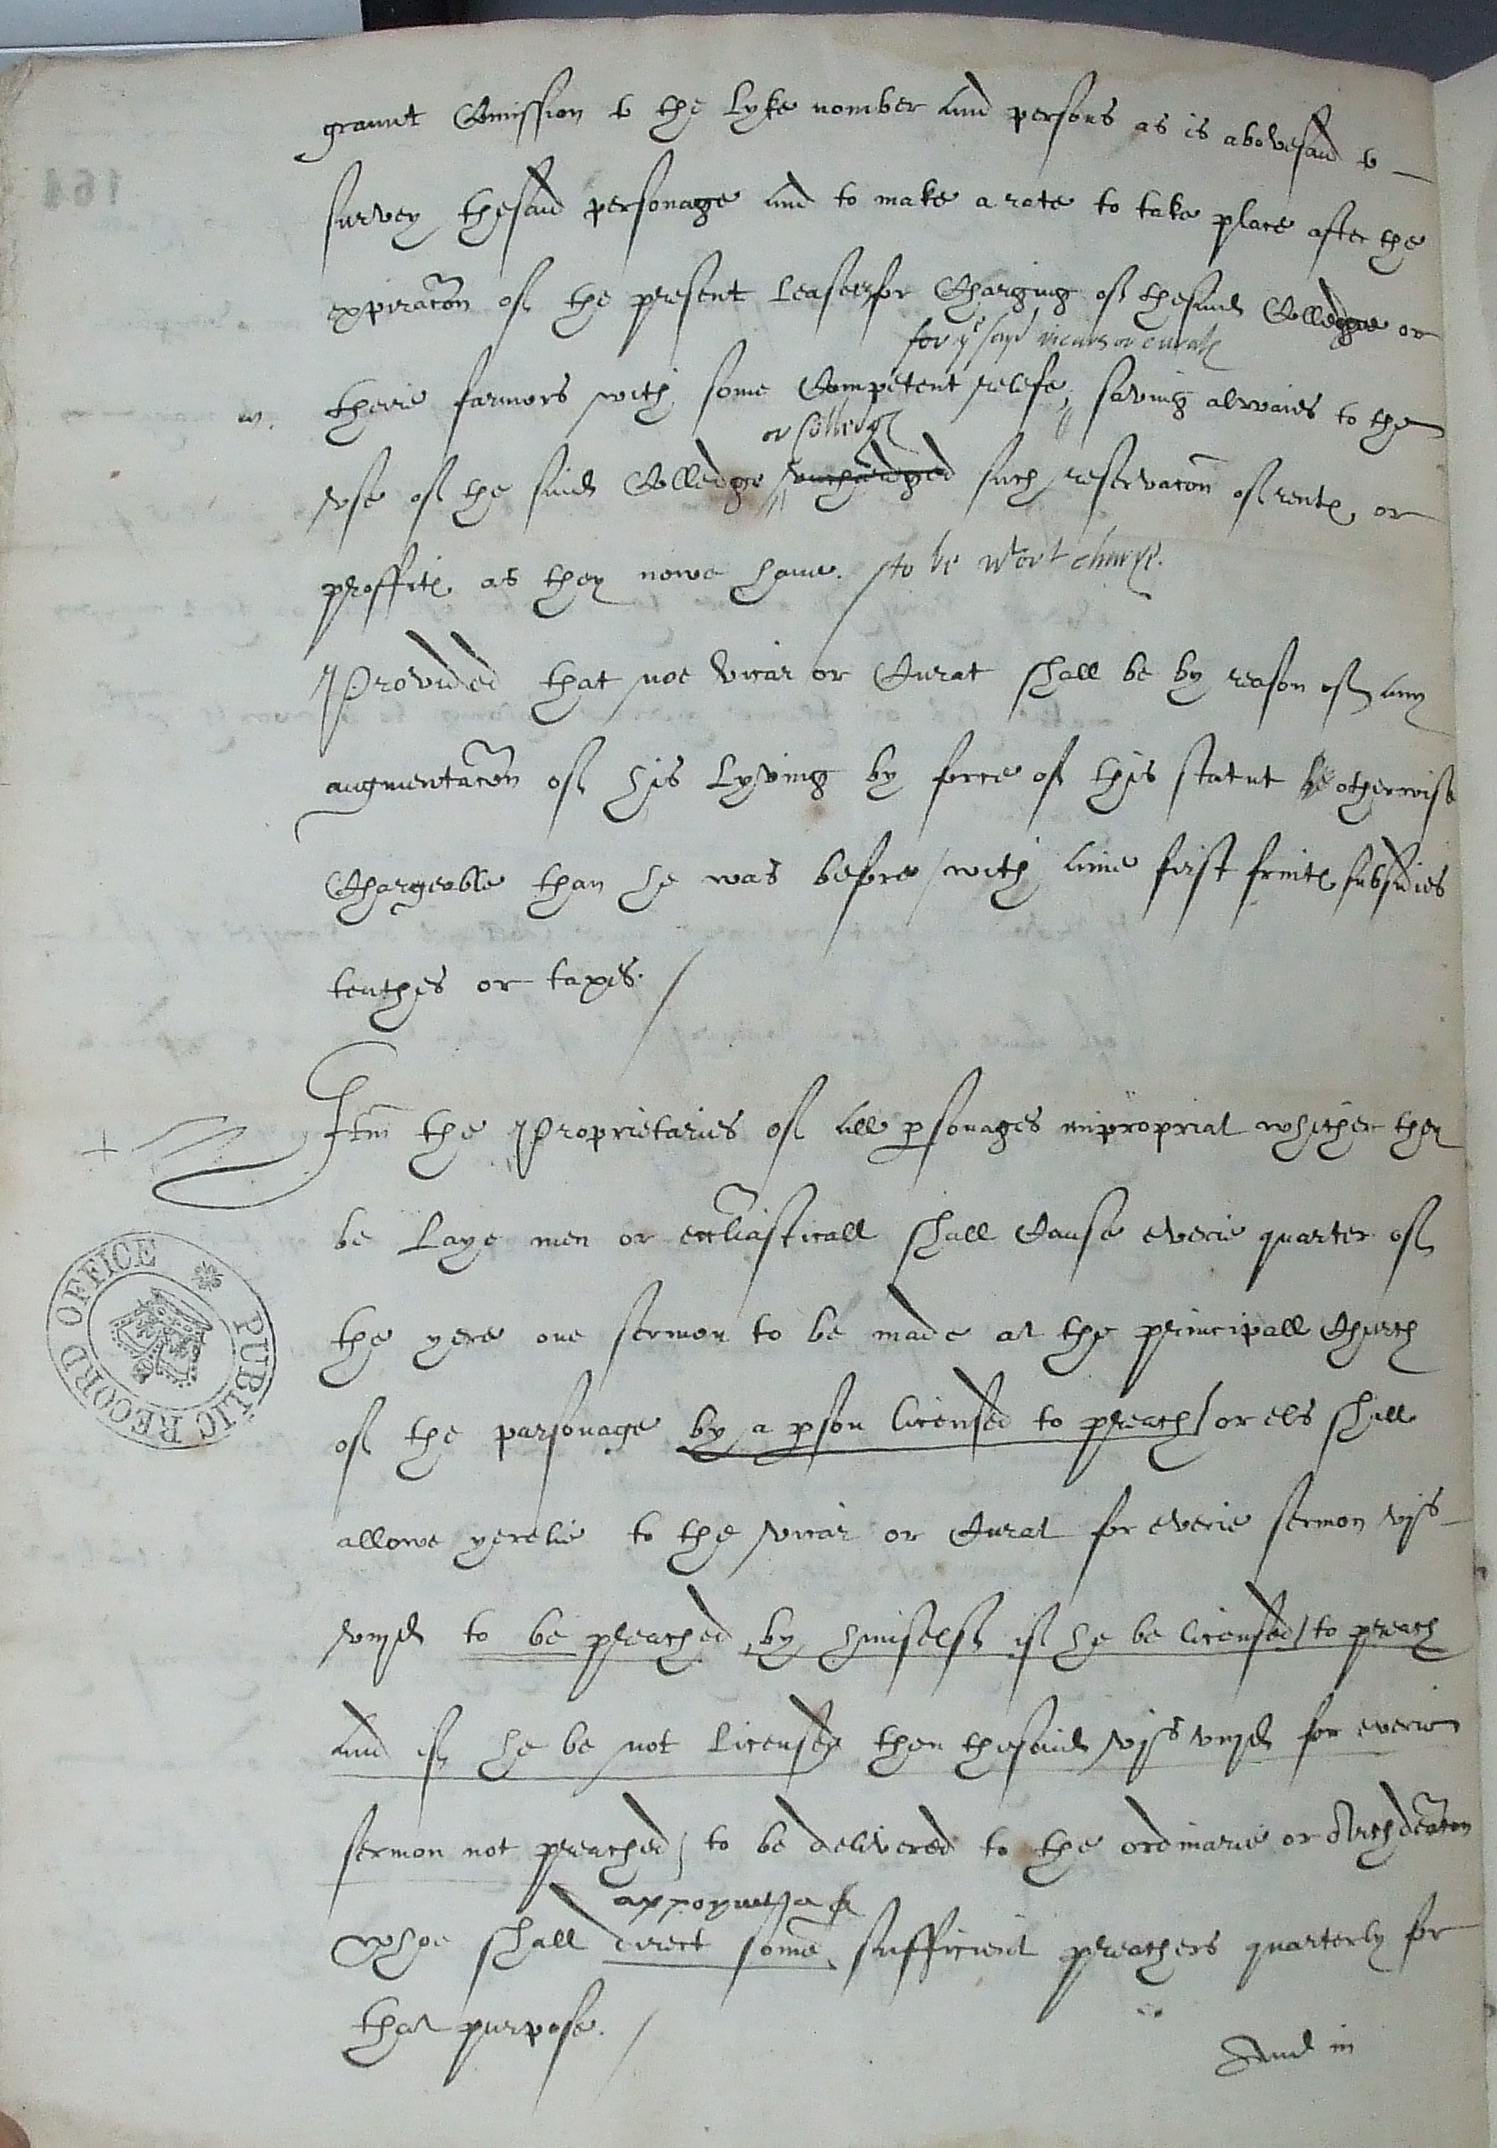 graunt Comission to the lyke nomber and persons as is abovesaid to
survey thesaid personage and to make a rate to take place after the
expiracon of the present leases for Charging of thesaid Colledge or
for ye sayd vicars or curats
theire farmors with some Competent relefe, saving alwaies to the
or Colledg
vse of the said Colledge such reservacon of rents or
proffits as they nowe have. to be wtout charge.
Provided that noe vicar or Curat shall be by reason of any
augmentacon of his lyving by force of this statut be otherwise
Chargeable than he was before / with anie first fruits subsidies
tenthes or taxes. /
Itm the Proprietaries of all psonages impropriat whether they
be laye men or eccliasticall shall Cause everie quarter of
the yere one sermon to be made at the principall Church
of the parsonage by a pson licensed to preach / or els shall
allowe yerelie to the vicar or Curat for everie sermon vjs
viijd to be preached by himself if he be licensed / to preach
And if he be not licensed then thesaid vjs viijd for everie
sermon not preached / to be delivered to the ordinarie or Archdeacon
appoynt
whoe shall direct some sufficient preachers quarterly for
that purpose. /
And in
PUBLIC RECORD OFFICE
164